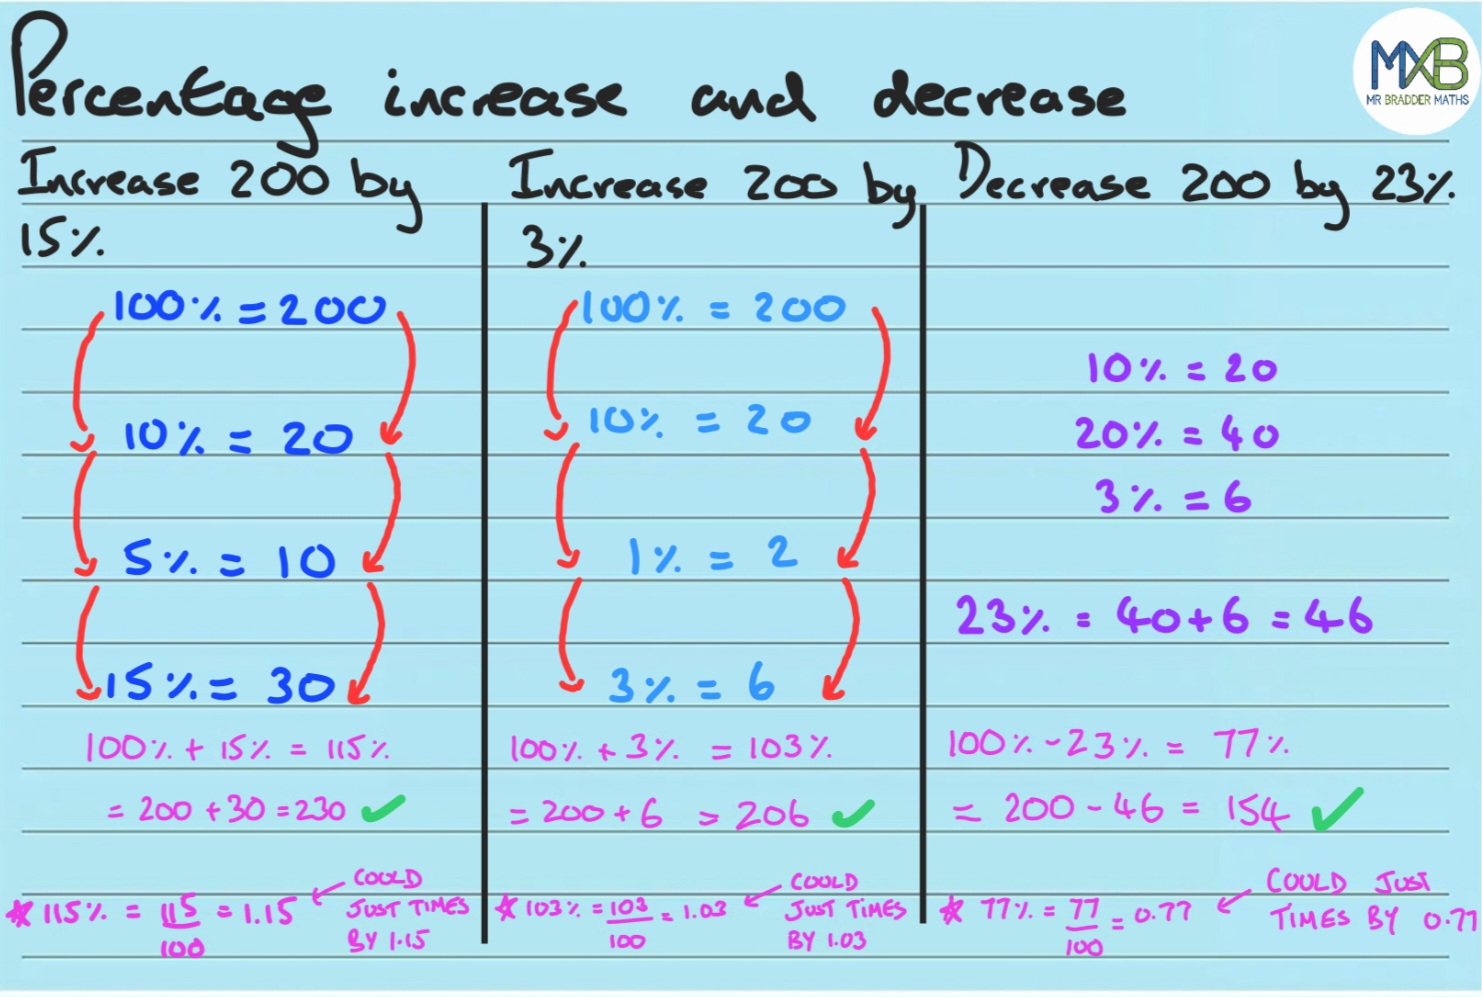 Percentage increase and decrease
MXB
MR BRADDER MATHS
Increase 200 by
15%
100% = 200
10% = 20
5% = 10
15% = 30
100% + 15% = 115%
= 200 + 30 = 230 ✓
* 115% = 115/100 = 1.15
COULD
JUST TIMES
BY 1.15
Increase 200 by
3%
100% = 200
10% = 20
1% = 2
3% = 6
100% + 3% = 103%
= 200 + 6 = 206 ✓
* 103% = 103/100 = 1.03
COULD
JUST TIMES
BY 1.03
Decrease 200 by 23%
10% = 20
20% = 40
3% = 6
23% = 40+6 = 46
100% - 23% = 77%
= 200 - 46 = 154 ✓
* 77% = 77/100 = 0.77
COULD JUST
TIMES BY 0.77